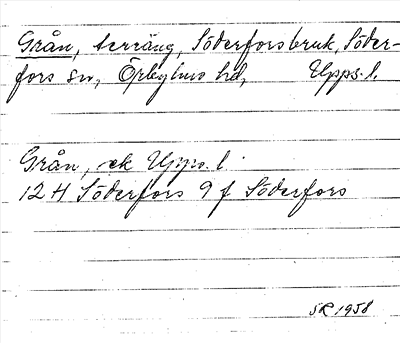 Grån, terräng, Söderforsbruk, Söder-
fors sn, Örbyhus hd, Upps. l.
Grån, ek Upps. l.
12 H Söderfors 9 f Söderfors
SR 1958